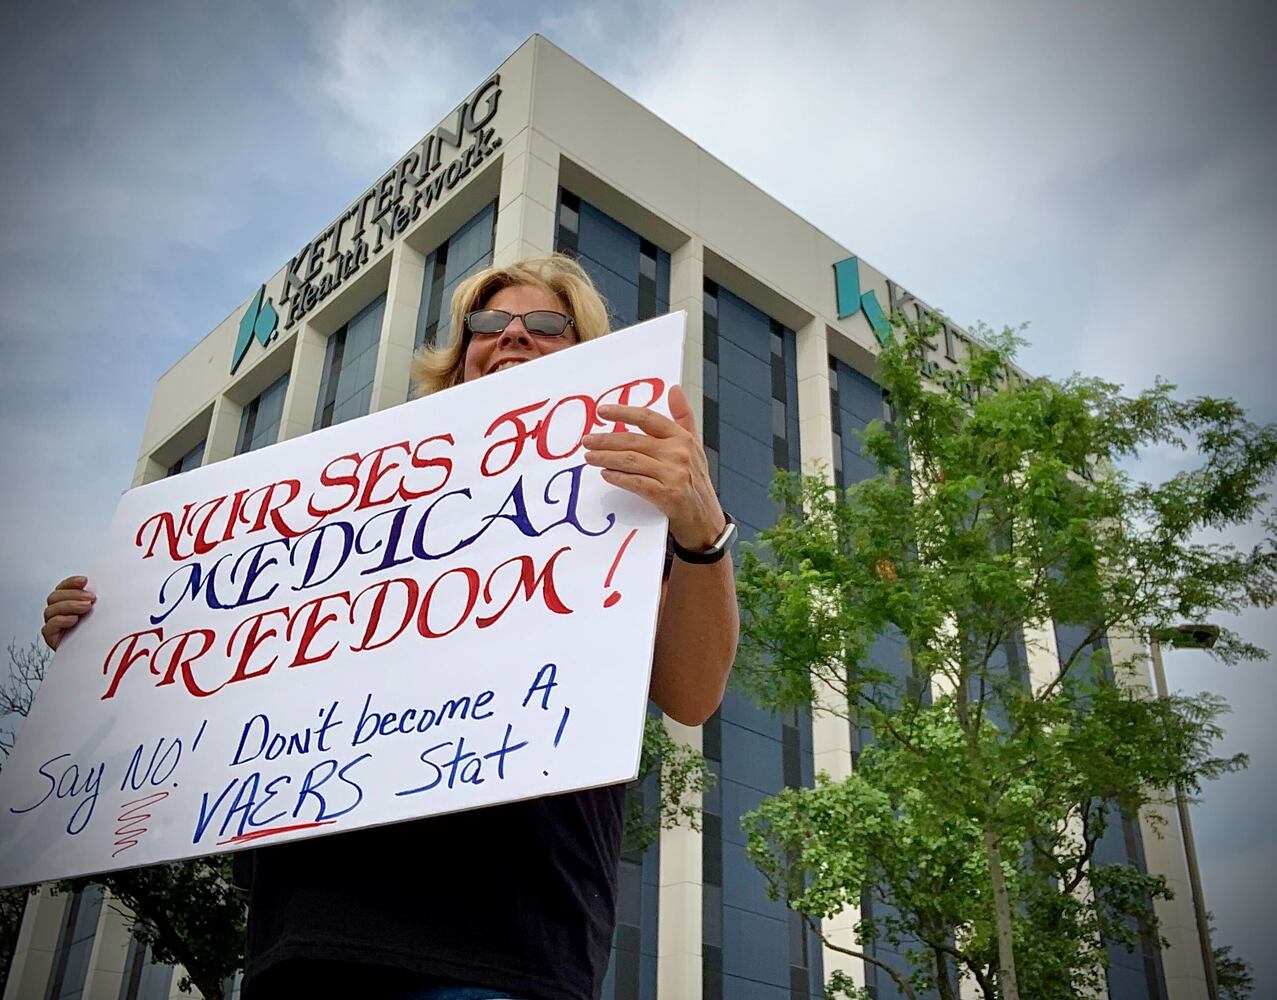 KETTERING
Health Network.
KETT
NURSES FOR
MEDICAL
FREEDOM!
Say NO! Don't become A
VAERS Stat!